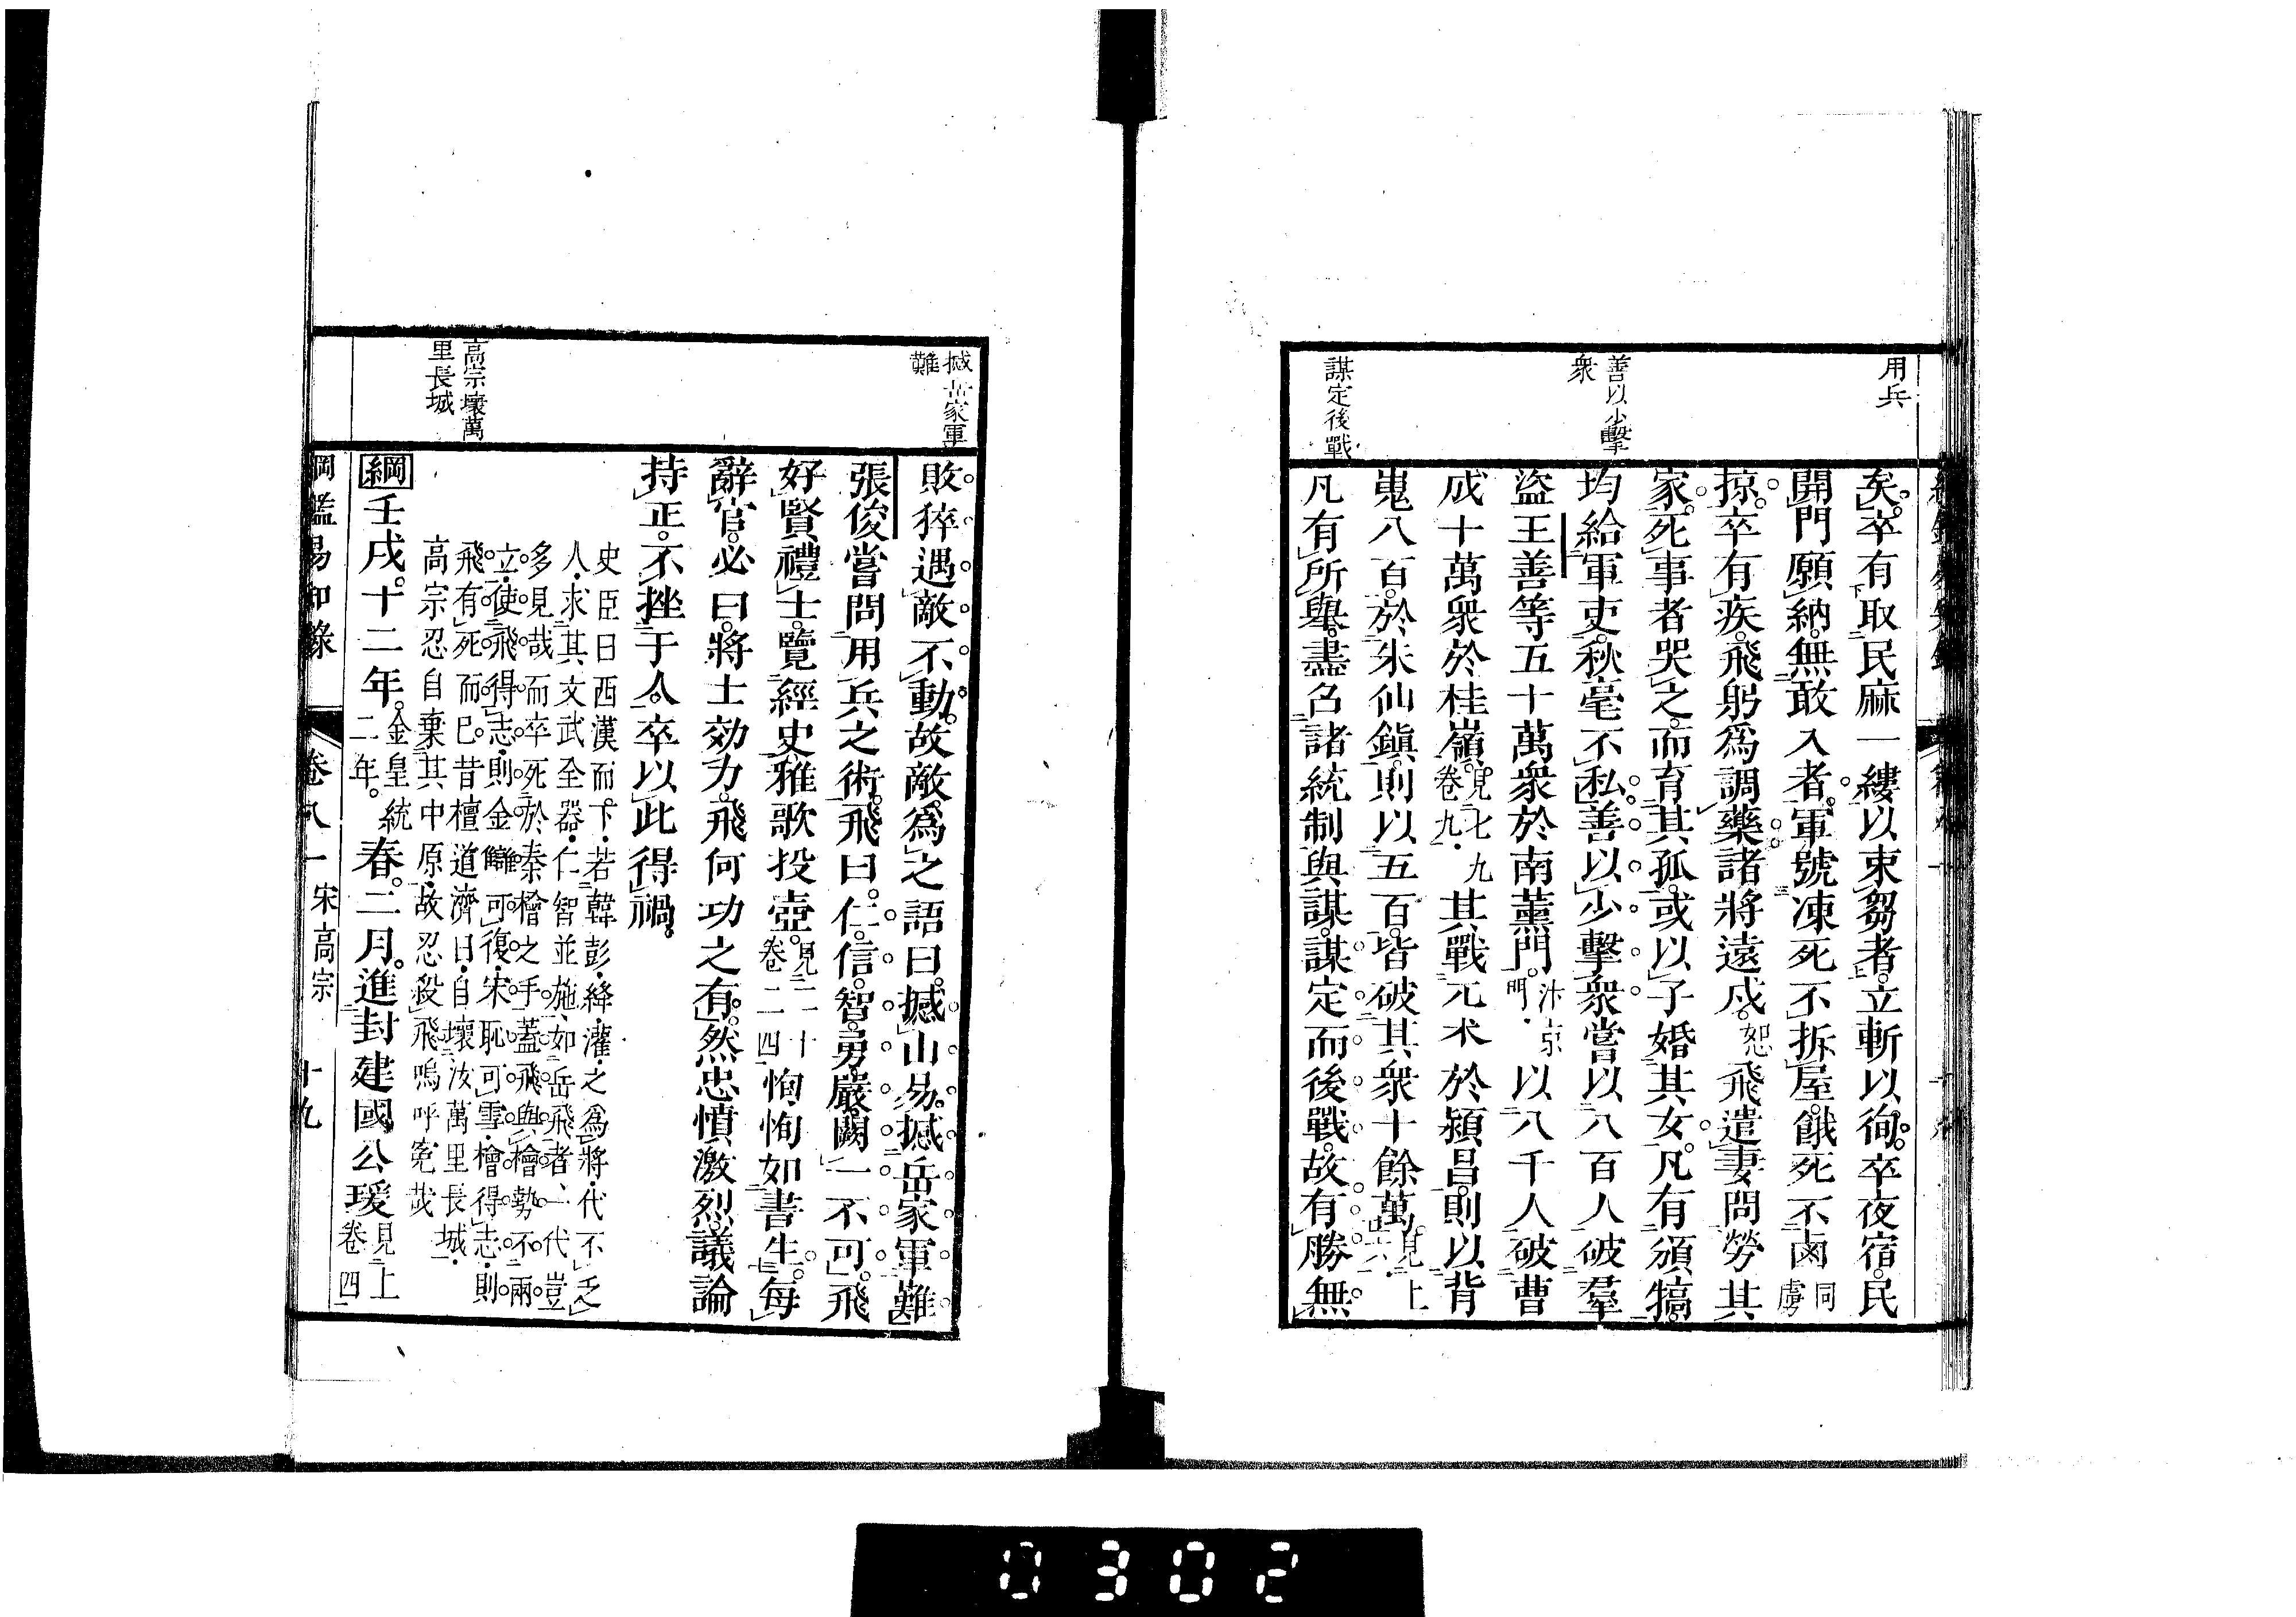 用兵
善以少擊
衆
謀定後戰
矣。卒有取民麻一縷以束芻者。立斬以徇。卒夜宿。民
開門願納。無敢入者。軍號凍死不拆屋。餓死不鹵同虜
掠。卒有疾。飛躬爲調藥。諸將遠戍。恕飛遣妻問勞其
家。死事者哭之。而育其孤。或以子婚其女。凡有頒犒。
均給軍吏。秋毫不私。善以少擊衆。嘗以八百人破羣
盜王善等五十萬衆於南薰門。汴京門。以八千人破曹
成十萬衆於桂嶺。見七九卷九。其戰兀朮於潁昌。則以背
嵬八百。於朱仙鎮。則以五百。皆破其衆十餘萬。見上
凡有所舉。盡召諸統制與謀。謀定而後戰。故有勝無
撼岳家軍
難
高宗壞萬
里長城
敗。猝遇敵不動。故敵爲之語曰。撼山易。撼岳家軍難。
張俊嘗問用兵之術。飛曰。仁。信。智。勇。嚴。闕一不可。飛
好賢禮士。覽經史。雅歌投壺。見二十卷二四恂恂如書生。每
辭官。必曰。將士効力。飛何功之有。然忠憤激烈。議論
持正。不挫于人。卒以此得禍。
史臣曰西漢而下。若韓彭絳灌之爲將。代不乏
人。求其文武全器。仁智並施。如岳飛者、一代豈
多見哉而卒死於秦檜之手。蓋飛與檜勢不兩
立。使飛得志。則金讎可復。宋恥可雪。檜得志。則
飛有死而已。昔檀道濟曰。自壞汝萬里長城。
高宗忍自棄其中原。故忍殺飛嗚呼寃哉
綱壬戌。十二年。金皇統二年。春。二月。進封建國公瑗見上卷四
綱鑑易知錄
卷八一
宋高宗
十九
0302